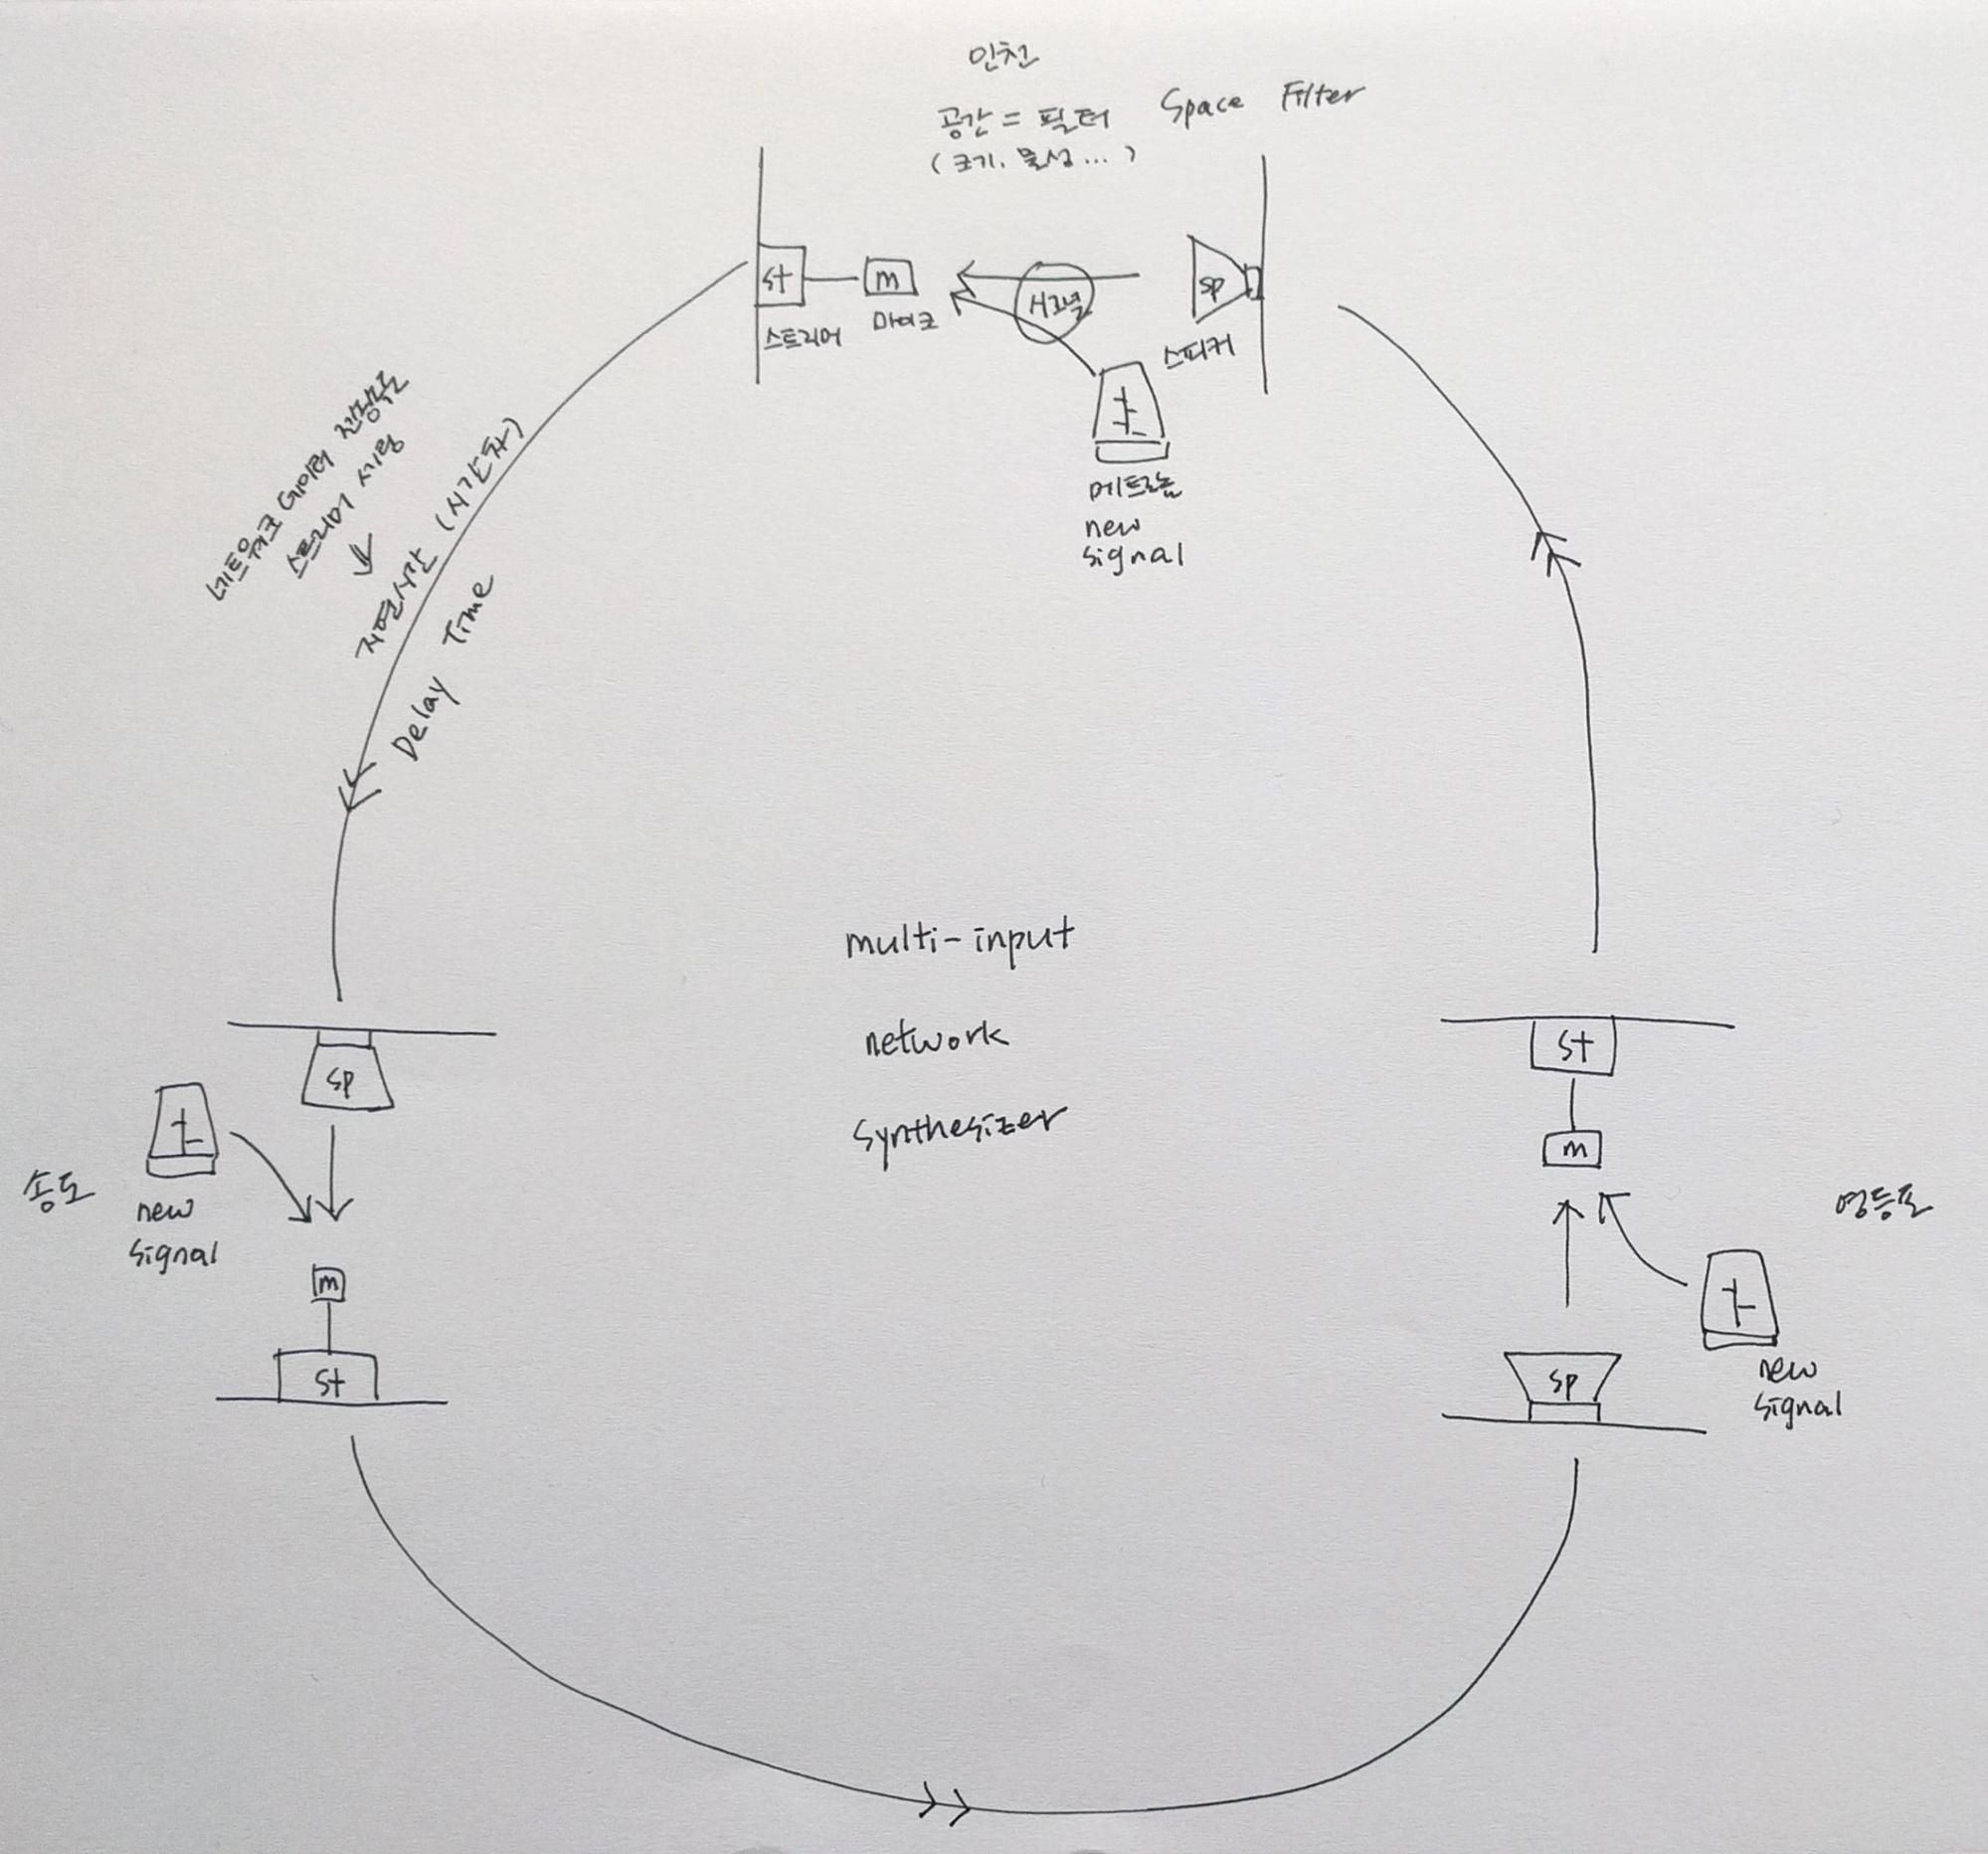 인천
공간 = 필터 Space Filter
(크기. 물성...)
st
m
sp
시그널
스트리머
마이크
스피커
메트로놈
new
signal
네트워크 데이터 전송속도
스트리머 세팅
지연시간 (시간차)
Delay Time
multi-input
network
synthesizer
sp
송도
new
signal
m
st
st
m
영등포
sp
new
signal